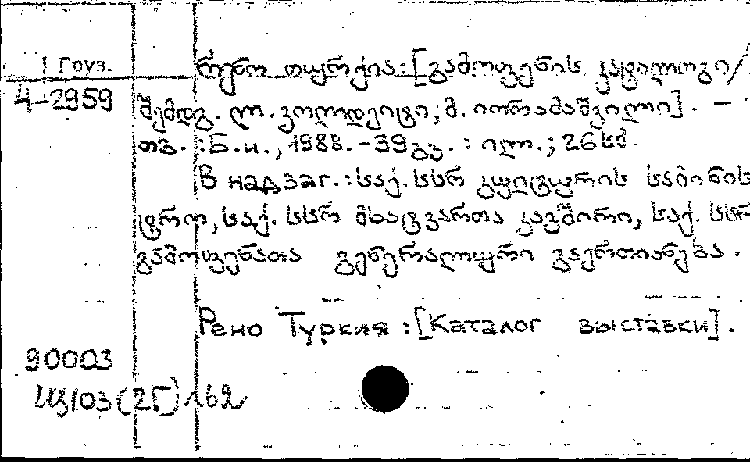 1 Груз.
რენო თურქია:[გამოფენის კატალოგი/
4-2959
შემდგ. ლ. გოლოდეიცი; მ. იორამაშვილი]. –
თბ.: Б.и., 1988.-39 გვ.: ილ.; 26 სმ.
В надзаг.: საქ. სსრ კულტურის სამინის
ტრო, საქ. სსრ მხატვართა კავშირი, საქ. სსრ
გამოფენათა გენერალური გაერთიანება.
Рено Туркия: [Каталог выставки].
90003
Щ103(2Г)162